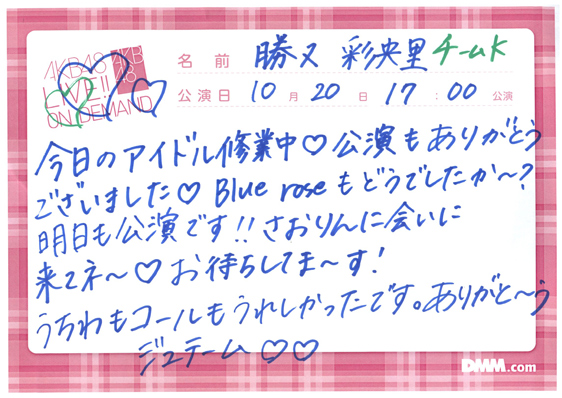 AKB48 LIVE!! ON DEMAND
AKB48
名前 勝又 彩央里 チームK
公演日 10月20日 17:00 公演
今日のアイドル修業中♡公演もありがとう
ございました♡ Blue roseもどうでしたか〜?
明日も公演です!!さおりんに会いに
来てネ〜♡お待ちしてま〜す!
うちわもコールもうれしかったです。ありがと〜う
ジュテーム♡♡
DMM.com